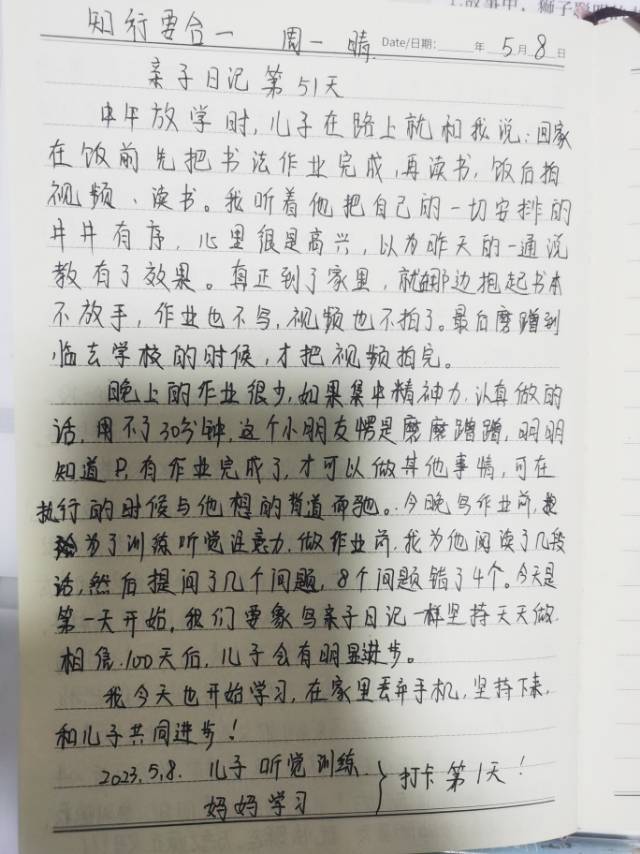 知行要合一 周一 晴 Date/日期: 年 5月 8日
亲子日记 第51天
中午放学时,儿子在路上就和我说:回家
在饭前先把书法作业完成,再读书,饭后拍
视频、读书。我听着他把自己的一切安排的
井井有序,心里很是高兴,以为昨天的一通说
教有了效果。真正到了家里,就那边抱起书本
不放手,作业也不写,视频也不拍了。最后磨蹭到
临去学校的时候,才把视频拍完。
晚上的作业很少,如果集中精神力,认真做的
话,用不了30分钟,这个小朋友愣是磨磨蹭蹭,明明
知道只有作业完成了,才可以做其他事情,可在
执行的时候与他想的背道而驰。今晚写作业前,
为了训练听觉注意力,做作业前,我为他阅读了几段
话,然后提问了几个问题,8个问题错了4个。今天是
第一天开始,我们要象写亲子日记一样坚持天天做.
相信.100天后,儿子会有明显进步。
我今天也开始学习,在家里丢弃手机,坚持下来,
和儿子共同进步!
2023.5.8. 儿子 听觉训练 } 打卡 第1天!
妈妈学习